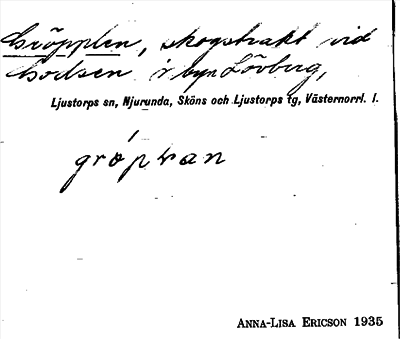 Gröpplen, skogstrakt vid
Godsen i byn Lövberg,
Ljustorps sn, Njurunda, Sköns och Ljustorps tg, Västernorrl. l.
gröpḷan
ANNA-LISA ERICSON 1935